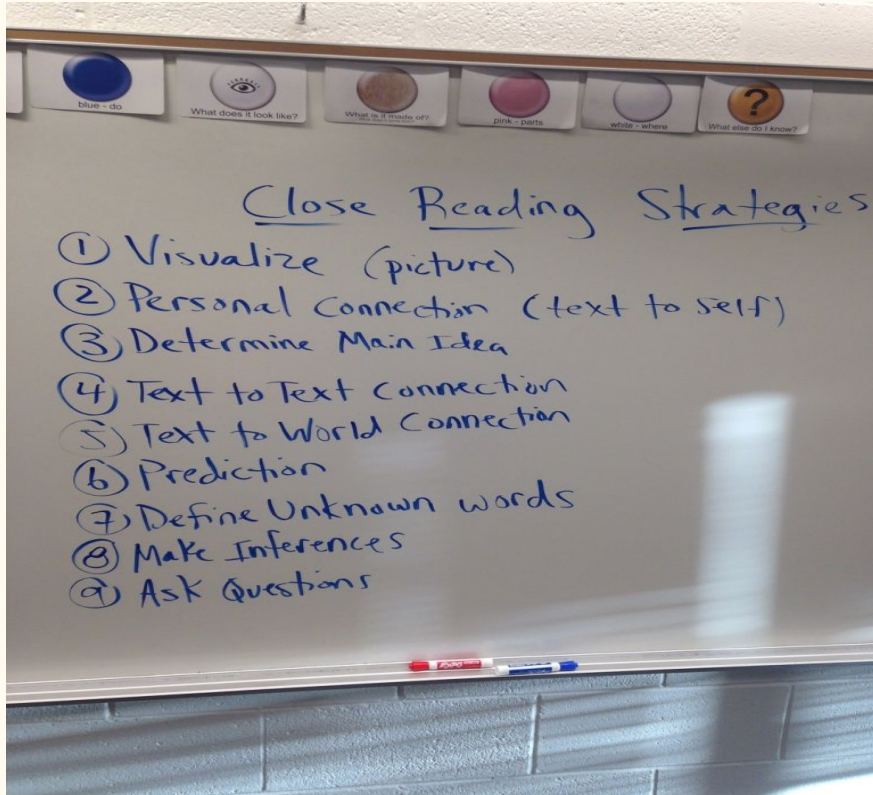 blue - do
What does it look like?
What is it made of?
pink - parts
white - where
?
What else do I know?
Close Reading Strategies
1 Visualize (picture)
2 Personal Connection (text to self)
3 Determine Main Idea
4 Text to Text Connection
5 Text to World Connection
6 Prediction
7 Define Unknown words
8 Make Inferences
9 Ask Questions